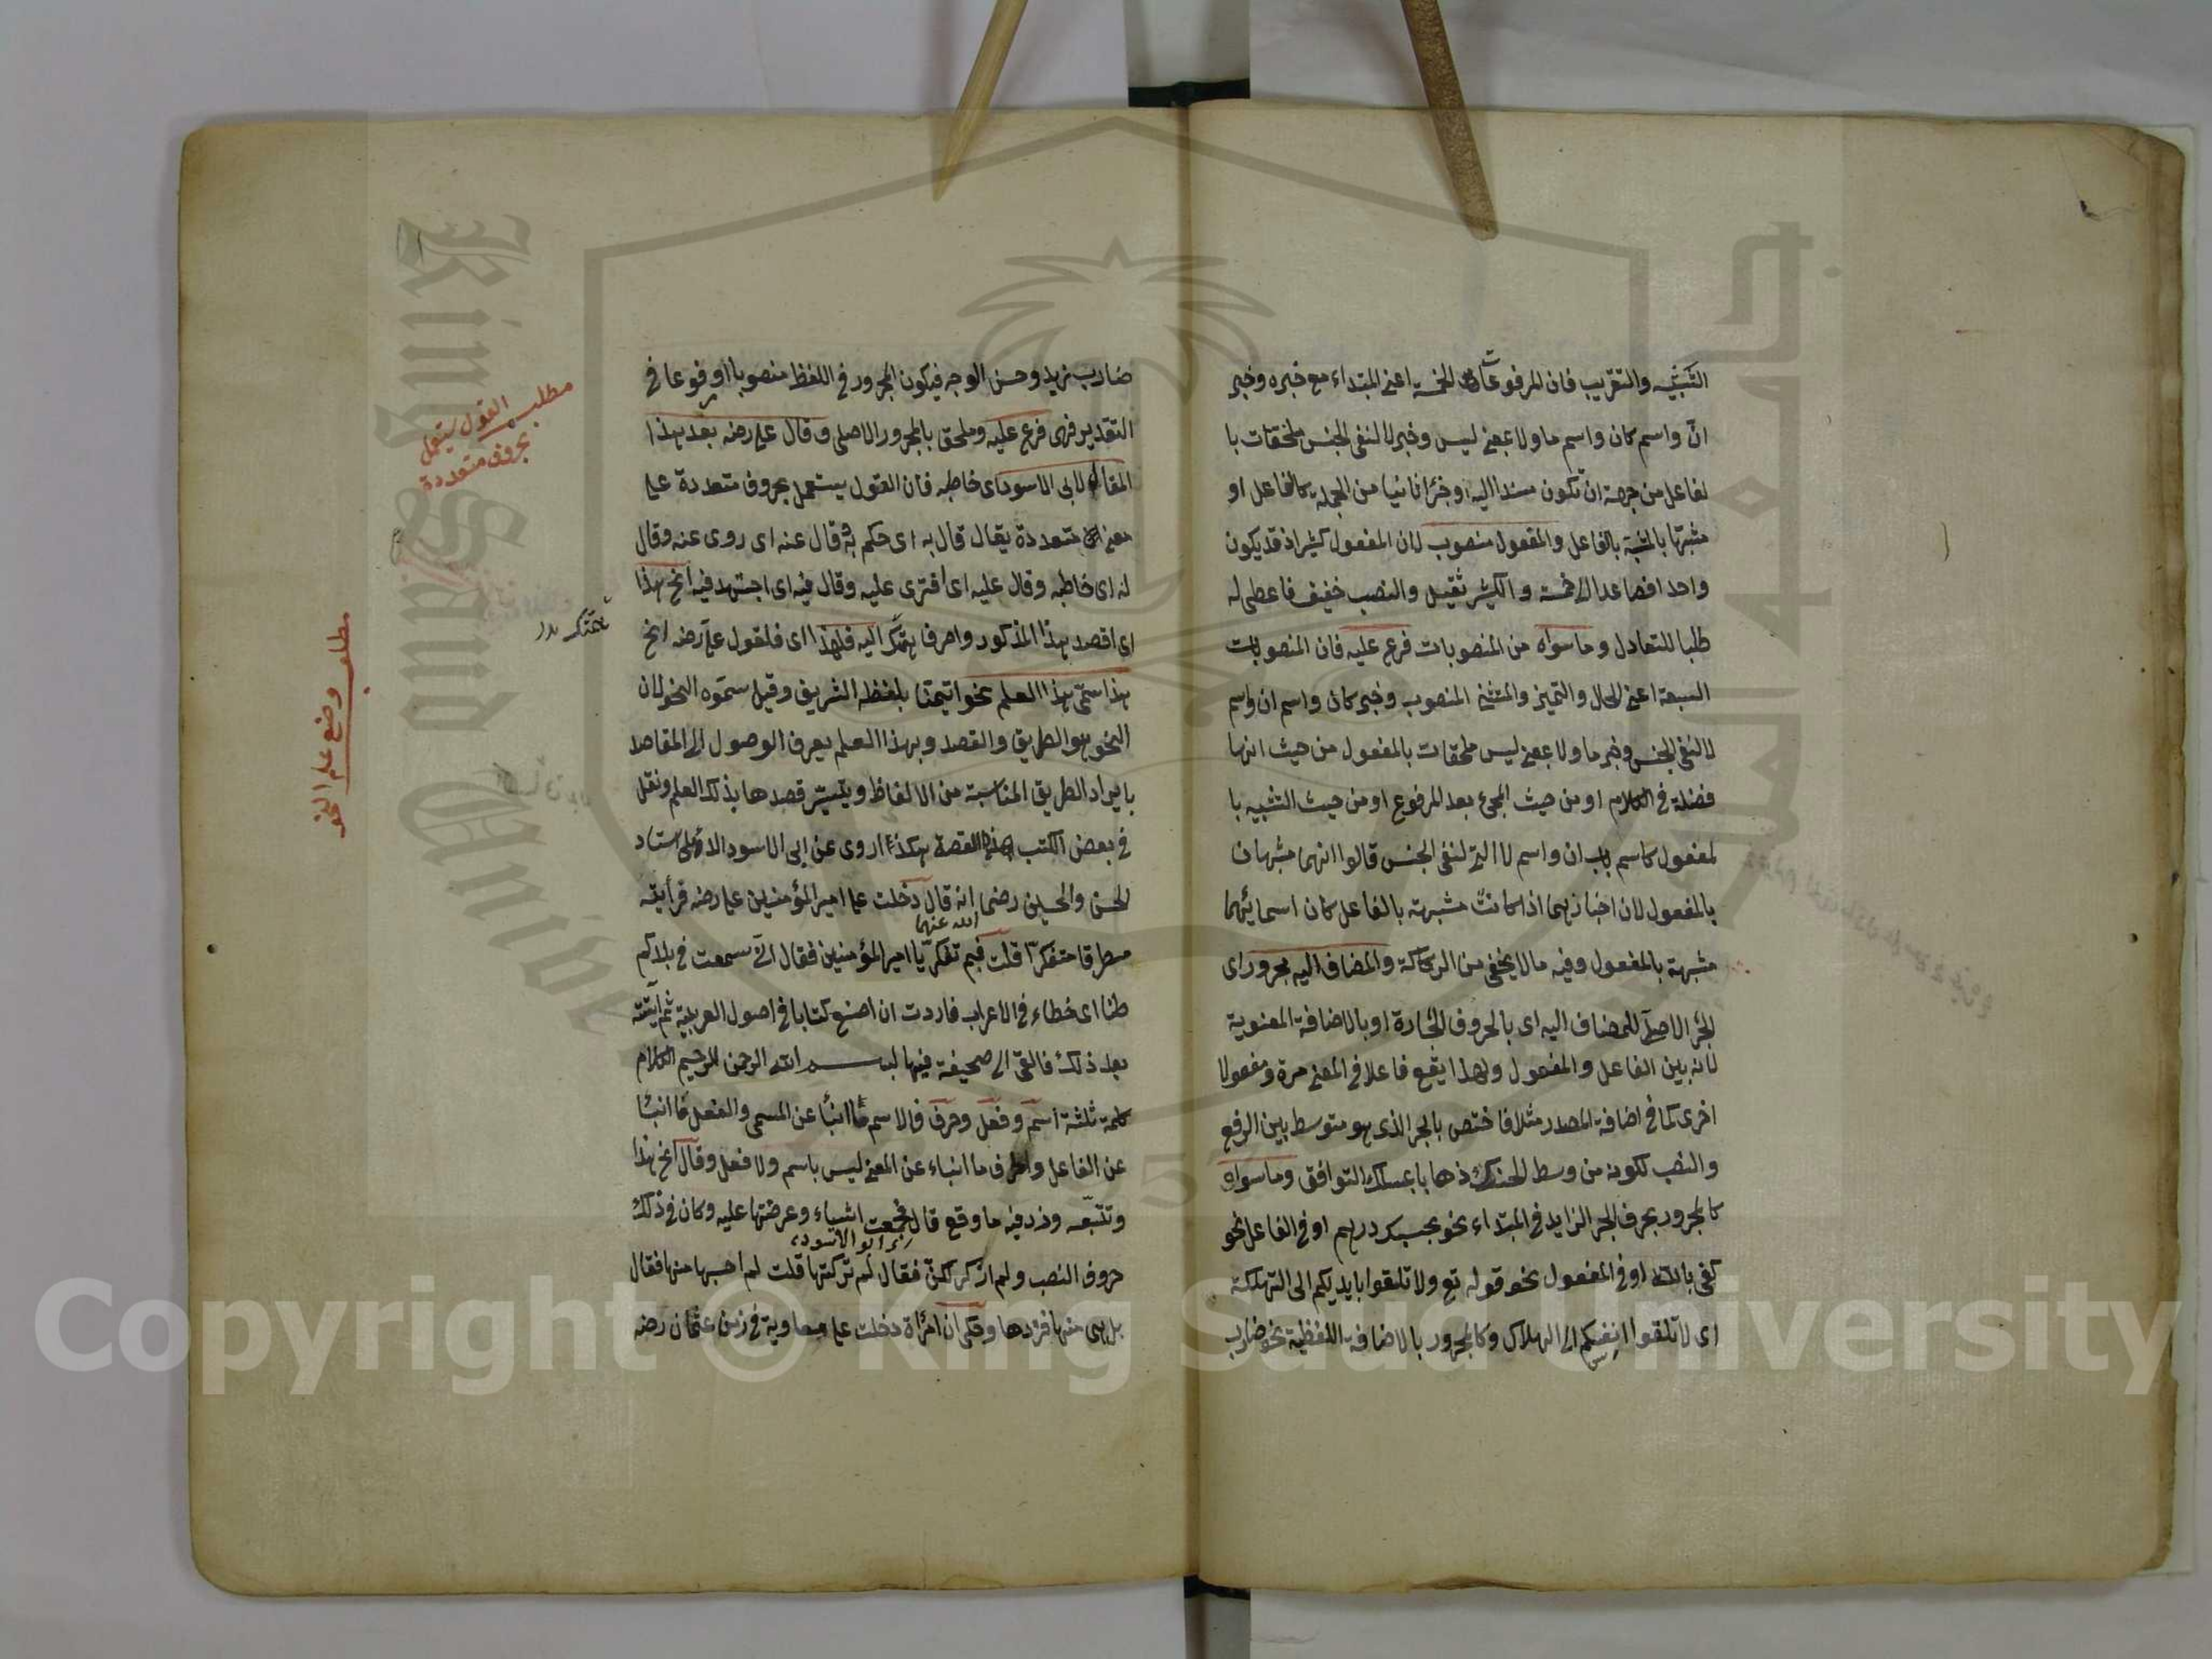 التشبيه والتقريب فان المرفوعات الخمسة اعنى المبتداء مع خبره وخبر
انّ واسم كان واسم ما ولا بمعنى ليس وخبر لا لنفى الجنس ملحقات با
لفاعل من جهة ان تكون مسندا اليه او جزأ ثانيا من الجملة كالفاعل او
مشبها بالمشبه بالفاعل والمفعول منصوب لان المفعول كثير اذ قد يكون
واحد افصاعدا الى خمسة والكثير ثقيل والنصب خفيف فاعطى له
طلبا للتعادل وما سواه من المنصوبات فرع عليه فان المنصوبات
السبعة اعنى الحال والتميز والمستثنى المنصوب وخبر كان واسم ان واسم
لا لنفى الجنس وخبر ما ولا بمعنى ليس ملحقات بالمفعول من حيث انها
فضلة فى الكلام او من حيث المجئ بعد المرفوع او من حيث التشبيه با
لمفعول كاسم باب ان واسم لا التى لنفى الجنس قالوا انهما مشبهان
بالمفعول لان اخبازيهما اذا كانت مشبهة بالفاعل كان اسمائهما
مشبهة بالمفعول وفيه ما لا يخفى من الركاكة والمضاف اليه مجرور اى
الجر الاصلى للمضاف اليه اى بالحروف الجارة او بالاضافة المعنوية
لانه بين الفاعل والمفعول ولهذا يقع فاعلا فى المعنى مرة ومفعولا
اخرى كما فى اضافة المصدر مثلا فاختص بالجر الذى هو متوسط بين الرفع
والنصب لكونه من وسط الحنك ذهابا بمسلك التوافق وما سواه
كالمجرور بحرف الجر الزايد فى المبتداء نحو بحسبك درهم او فى الفاعل نحو
كفى بالله او فى المفعول نحو قوله تع ولا تلقوا بايديكم الى التهلكة
اى لا تلقوا انفسكم الى الهلاك وكالمجرور بالاضافة اللفظية نحو ضارب
ضارب زيد وحسن الوجه فيكون المجرور فى اللفظ منصوبا او مرفوعا فى
التقدير فهى فرع عليه وملحق بالمجرور الاصلى وقال على رضه بعد هذا
المقال لابى الاسود اى خاطبه فان القول يستعمل بحروف متعددة على
معنى متعددة يقال قال به اى حكم به وقال عنه اى روى عنه وقال
له اى خاطبه وقال عليه اى افترى عليه وقال فيه اى اجتهد فيه انح هذا
اى اقصد هذا المذكور واصرف همتك اليه فلهذا اى فلقول على رضه انح
هذا سمّى هذا العلم نحوا تيمنا بلفظه الشريف وقيل سمّوه النحو لان
النحو هو الطريق والقصد وبهذا العلم يعرف الوصول الى المقاصد
بايراد الطريق المناسبة من الالفاظ ويتيسّر قصدها بذلك العلم ونقل
فى بعض الكتب هذه القصة هكذا روى عن ابى الاسود الدؤلى استاد
الحسن والحسين رضى الله عنهما انه قال دخلت على امير المؤمنين على رضه فرأيته
مطرقا متفكرّا قلت فبم تفكر يا امير المؤمنين فقال انّى سمعت فى بلادكم
اى خطاء فى الاعراب فاردت ان اصنع كتابا فى اصول العربية ثم اتيته
بعد ذلك فالقى الى صحيفة فيها بسم الله الرحمن الرحيم الكلام
كلمة ثلثة اسم وفعل وحرف فالاسم ما انبأ عن المسمى والفعل ما انبأ
عن الفاعل والحرف ما انباء عن المعنى ليس باسم ولا فعل وقال انح هذا
وتتبّعه وزد فيه ما وقع قال ابو الاسود فجمعت اشياء وعرضتها عليه وكان فى ذلك
حروف النصب ولم اذكر لكنّ فقال لم تركتها قلت لم احسبها منها فقال
بل هى منها فزدها وحكى ان امرأة دخلت على معاوية فى زمن عثمان رضه
مطلب
القول يستعمل
بحروف متعددة
مطلب وضع علم النحو
Copyright © King Saud University
King Saud Unive